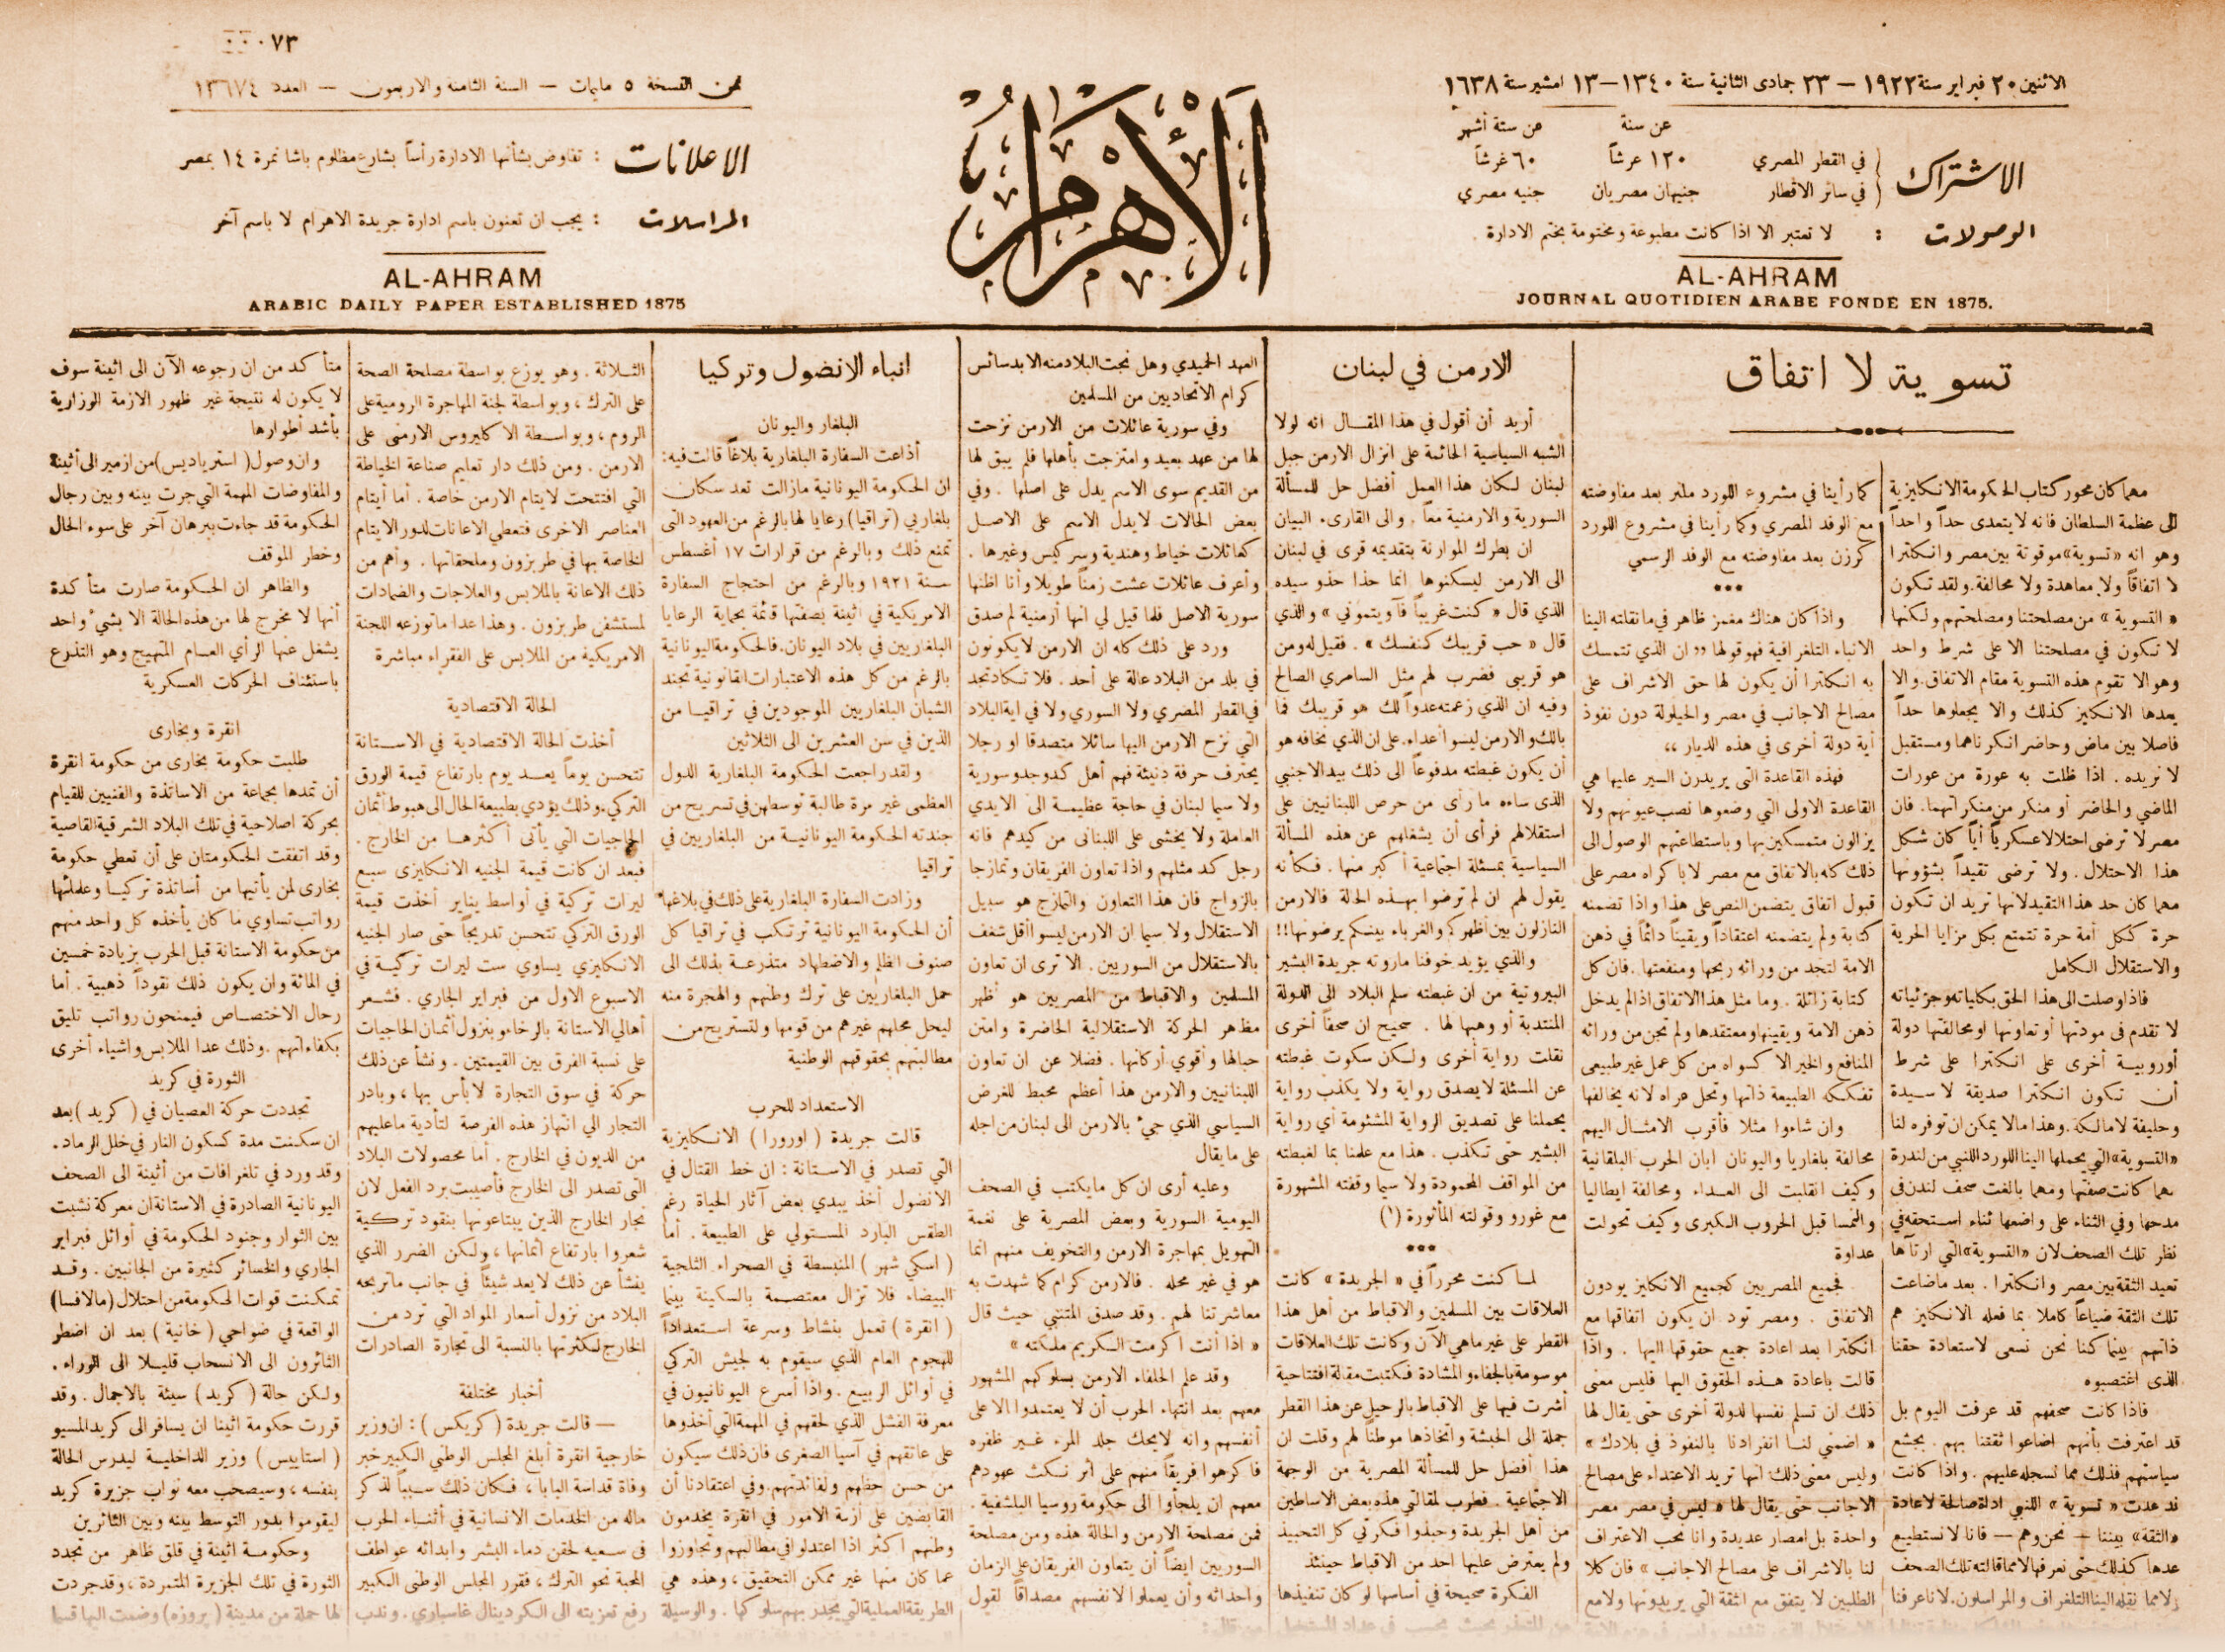 ٠٠٠٧٣
الاثنين ٢٠ فبراير سنة ١٩٢٢ – ٢٣ جمادى الثانية سنة ١٣٤٠ – ١٣ امشير سنة ١٦٣٨
عن سنة عن ستة أشهر
الاشتراك في القطر المصري ١٢٠ غرشاً ٦٠ غرشاً
في سائر الاقطار جنيهان مصريان جنيه مصري
الوصولات : لا تعتبر الا اذا كانت مطبوعة ومختومة بختم الادارة
AL-AHRAM
JOURNAL QUOTIDIEN ARABE FONDÉ EN 1875.
الأهرام
ثمن النسخة ٥ مليمات – السنة الثامنة والاربعون – العدد ١٣٦٧٤
الاعلانات : تفاوض بشأنها الادارة رأساً بشارع مظلوم باشا نمرة ١٤ بمصر
المراسلات : يجب ان تعنون باسم ادارة جريدة الاهرام لا باسم آخر
AL-AHRAM
ARABIC DAILY PAPER ESTABLISHED 1875
تسوية لا اتفاق
مهما كان محور كتاب الحكومة الانكليزية
الى عظمة السلطان فانه لا يتعدى حداً واحداً
وهو انه «تسوية» موقوتة بين مصر وانكلترا
لا اتفاقاً ولا معاهدة ولا محالفة. ولقد تكون
« التسوية » من مصلحتنا ومصلحتهم ولكنها
لا تكون في مصلحتنا الا على شرط واحد
وهو الا تقوم هذه التسوية مقام الاتفاق. والا
يعدها الانكليز كذلك والا يجعلوها حداً
فاصلا بين ماض وحاضر انكرناهما ومستقبل
لا نريده . اذا ظلت به عورة من عورات
الماضي والحاضر أو منكر من منكراتهما. فان
مصر لا ترضى احتلالا عسكرياً أياً كان شكل
هذا الاحتلال . ولا ترضى تقيداً بشؤونها
مهما كان حد هذا التقيد لانها تريد ان تكون
حرة ككل أمة حرة تتمتع بكل مزايا الحرية
والاستقلال الكامل
فاذا وصلت الى هذا الحق بكلياته وجزئياته
لا تقدم في مودتها أو تعاونها او محالفتها دولة
أوروبية أخرى على انكلترا على شرط
أن تكون انكلترا صديقة لا سيدة
وحليفة لا مالكة. وهذا ما لا يمكن ان توفره لنا
«التسوية» التي يحملها الينا اللورد اللنبي من لندرة
مهما كانت صفتها ومهما بالغت صحف لندن في
مدحها وفي الثناء على واضعها ثناء استحقه في
نظر تلك الصحف لان «التسوية» التي ارتآها
تعيد الثقة بين مصر وانكلترا . بعد ما ضاعت
تلك الثقة ضياعاً كاملا بما فعله الانكليز هم
ذاتهم بينما كنا نحن نسعى لاستعادة حقنا
الذى اغتصبوه
فاذا كانت صحفهم قد عرفت اليوم بل
قد اعترفت بأنهم اضاعوا ثقتنا بهم . بجشع
سياستهم فذلك مما نسجله عليهم . واذا كانت
قد عدت « تسوية » اللنبي اداة صالحة لاعادة
«الثقة» بيننا – نحن وهم – فانا لا نستطيع
عدها كذلك حتى نعرفها لا مما قالته تلك الصحف
ولا مما نقله الينا التلغراف والمراسلون. لاننا عرفنا
كما رأينا في مشروع اللورد ملنر بعد مفاوضته
مع الوفد المصري وكما رأينا في مشروع اللورد
كرزن بعد مفاوضته مع الوفد الرسمي
***
واذا كان هناك مغمز ظاهر في ما نقلته الينا
الانباء التلغرافية فهو قولها «ان الذي تتمسك
به انكلترا أن يكون لها حق الاشراف على
مصالح الاجانب في مصر والحيلولة دون نفوذ
أية دولة أخرى في هذه الديار»
فهذه القاعدة التي يريدون السير عليها هي
القاعدة الاولى التي وضعوها نصب عيونهم ولا
يزالون متمسكين بها وباستطاعتهم الوصول الى
ذلك كله بالاتفاق مع مصر لا باكراه مصر على
قبول اتفاق يتضمن النص على هذا واذا تضمنه
كتابة ولم يتضمنه اعتقاداً ويقيناً دائماً في ذهن
الامة لتجد من ورائه ربحها ومنفعتها . فان كل
كتابة زائلة . وما مثل هذا الاتفاق اذا لم يدخل
ذهن الامة ويقينها ومعتقدها ولم تجن من ورائه
المنافع والخير الا كسواه من كل عمل غير طبيعى
تفككه الطبيعة ذاتها وتحل عراه لانه يخالفها
وان شاءوا مثلا فأقرب الامثال اليهم
محالفة بلغاريا واليونان ابان الحرب البلقانية
وكيف انقلبت الى العداء ومحالفة ايطاليا
والنمسا قبل الحروب الكبرى وكيف تحولت
عداوة
فجميع المصريين كجميع الانكليز يودون
الاتفاق . ومصر تود ان يكون اتفاقها مع
انكلترا بعد اعادة جميع حقوقها اليها . واذا
قالت باعادة هذه الحقوق اليها فليس معنى
ذلك ان تسلم نفسها لدولة أخرى حتى يقال لها
« اضمني لنا انفرادنا بالنفوذ في بلادك »
وليس معنى ذلك انها تريد الاعتداء على مصالح
الاجانب حتى يقال لها « ليس في مصر مصر
واحدة بل امصار عديدة وانا نحب الاعتراف
لنا بالاشراف على مصالح الاجانب » فان كلا
الطلبين لا يتفق مع الثقة التي يريدونها ولا مع
الارمن في لبنان
أريد أن أقول في هذا المقال انه لولا
الشبه السياسية الحائمة على انزال الارمن جبل
لبنان لكان هذا العمل أفضل حل للمسألة
السورية والارمنية معاً . والى القارىء البيان
ان بطرك الموارنة بتقديمه قرى في لبنان
الى الارمن ليسكنوها انما حذا حذو سيده
الذي قال « كنت غريباً فآويتموني » والذي
قال « حب قريبك كنفسك » . فقيل له ومن
هو قريبى فضرب لهم مثل السامري الصالح
وفيه ان الذي زعمته عدواً لك هو قريبك فما
بالك والارمن ليسوا أعداء. على ان الذي نخافه هو
أن يكون غبطته مدفوعاً الى ذلك بيد الاجنبي
الذى ساءه ما رأى من حرص اللبنانيين على
استقلالهم فرأى أن يشغلهم عن هذه المسألة
السياسية بمسئلة اجتماعية أكبر منها . فكأنه
يقول لهم ان لم ترضوا بهذه الحالة فالارمن
النازلون بين أظهركم والغرباء بينكم يرضونها!!
والذي يؤيد خوفنا ما روته جريدة البشير
البيروتية من ان غبطته سلم البلاد الى الدولة
المنتدبة أو وهبها لها . صحيح ان صحفاً أخرى
نقلت رواية أخرى ولكن سكوت غبطته
عن المسئلة لا يصدق رواية ولا يكذب رواية
يحملنا على تصديق الرواية المشئومة أي رواية
البشير حتى تكذب . هذا مع علمنا بما لغبطته
من المواقف المحمودة ولا سيما وقفته المشهورة
مع غورو وقولته المأثورة (١)
***
لما كنت محرراً في « الجريدة » كانت
العلاقات بين المسلمين والاقباط من أهل هذا
القطر على غير ماهي الآن وكانت تلك العلاقات
موسومة بالجفاء والمشادة فكتبت مقالة افتتاحية
أشرت فيها على الاقباط بالرحيل عن هذا القطر
جملة الى الحبشة واتخاذها موطناً لهم وقلت ان
هذا أفضل حل للمسألة المصرية من الوجهة
الاجتماعية . فطرب لمقالتي هذه بعض الاساطين
من أهل الجريدة وحبذوا فكرتي كل التحبيذ
ولم يعترض عليها احد من الاقباط حينئذ
الفكرة صحيحة في أساسها لو كان تنفيذها
العهد الحميدي وهل نجت البلاد منه الا بدسائس
كرام الاتحاديين من المسلمين
وفي سورية عائلات من الارمن نزحت
لها من عهد بعيد وامتزجت بأهلها فلم يبق لها
من القديم سوى الاسم يدل على اصلها . وفي
بعض الحالات لا يدل الاسم على الاصل
كعائلات خياط وهندية وسركيس وغيرها .
وأعرف عائلات عشت زمناً طويلا وأنا اظنها
سورية الاصل فلما قيل لي انها أرمنية لم صدق
ورد على ذلك كله ان الارمن لا يكونون
في بلد من البلاد عالة على أحد . فلا تكاد تجد
في القطر المصري ولا السوري ولا في اية البلاد
التي نزح الارمن اليها سائلا متصدقا او رجلا
يحترف حرفة دنيئة فهم أهل كد وجد وسورية
ولا سيما لبنان في حاجة عظيمة الى الايدي
العاملة ولا يخشى على اللبنانى من كيدهم فانه
رجل كد مثلهم واذا تعاون الفريقان وتمازجا
بالزواج فان هذا التعاون والتمازج هو سبيل
الاستقلال ولا سيما ان الارمن ليسوا أقل شغف
بالاستقلال من السوريين . الا ترى ان تعاون
المسلمين والاقباط من المصريين هو أظهر
مظهر الحركة الاستقلالية الحاضرة وامتن
حبالها وأقوي أركانها . فضلا عن ان تعاون
اللبنانيين والارمن هذا أعظم محبط للغرض
السياسي الذي جيء بالارمن الى لبنان من اجله
على ما يقال
وعليه أرى ان كل ما يكتب في الصحف
اليومية السورية وبعض المصرية على نغمة
التهويل بمهاجرة الارمن والتخويف منهم انما
هو في غير محله . فالارمن كرام كما شهدت به
معاشرتنا لهم . وقد صدق المتنبي حيث قال
« اذا أنت اكرمت الكريم ملكته »
وقد علم الحلفاء الارمن بسلوكهم المشهور
معهم بعد انتهاء الحرب أن لا يعتمدوا الا على
أنفسهم وانه لا يحك جلد المرء غير ظفره
فاكرهوا فريقاً منهم على أثر نكث عهودهم
معهم ان يلجأوا الى حكومة روسيا البلشفية .
فمن مصلحة الارمن والحالة هذه ومن مصلحة
السوريين ايضاً أن يتعاون الفريقان على الزمان
واحداثه وأن يعملوا لانفسهم مصداقاً لقول
من قال :
انباء الانضول وتركيا
البلغار واليونان
أذاعت السفارة البلغارية بلاغاً قالت فيه:
ان الحكومة اليونانية مازالت تعد سكان
بلغاريي (تراقيا) رعايا لها بالرغم من العهود التى
تمنع ذلك وبالرغم من قرارات ١٧ أغسطس
سنة ١٩٢١ وبالرغم من احتجاج السفارة
الامريكية في اثينة بصفتها قائمة بحماية الرعايا
البلغاريين في بلاد اليونان. فالحكومة اليونانية
بالرغم من كل هذه الاعتبارات القانونية تجند
الشبان البلغاريين الموجودين في تراقيا من
الذين في سن العشرين الى الثلاثين
ولقد راجعت الحكومة البلغارية الدول
العظمى غير مرة طالبة توسطهن في تسريح من
جندته الحكومة اليونانية من البلغاريين في
تراقيا
وزادت السفارة البلغارية على ذلك في بلاغها
أن الحكومة اليونانية ترتكب في تراقيا كل
صنوف الظلم والاضطهاد متذرعة بذلك الى
حمل البلغاريين على ترك وطنهم والهجرة منه
ليحل محلهم غيرهم من قومها ولتستريح من
مطالبتهم بحقوقهم الوطنية
الاستعداد للحرب
قالت جريدة ( اورورا ) الانكليزية
التي تصدر في الاستانة : ان خط القتال في
الانضول أخذ يبدي بعض آثار الحياة رغم
الطقس البارد المستولي على الطبيعة . أما
( اسكي شهر ) المنبسطة في الصحراء الثلجية
البيضاء فلا تزال معتصمة بالسكينة بينما
( انقرة ) تعمل بنشاط وسرعة استعداداً
للهجوم العام الذي سيقوم به لجيش التركي
في أوائل الربيع . واذا أسرع اليونانيون في
معرفة الفشل الذي لحقهم في المهمة التي أخذوها
على عاتقهم في آسيا الصغرى فان ذلك سيكون
من حسن حظهم ولفائدتهم. وفي اعتقادنا أن
القابضين على أزمة الامور في انقرة يخدمون
وطنهم اكثر اذا اعتدلوا في مطالبهم وتجاوزوا
عما كان منها غير ممكن التحقيق ، وهذه هي
الطريقة العملية التي يجدر بهم سلوكها . والوسيلة
الثلاثة . وهو يوزع بواسطة مصلحة الصحة
على الترك ، وبواسطة لجنة المهاجرة الرومية على
الروم ، وبواسطة الاكليروس الارمنى على
الارمن . ومن ذلك دار تعليم صناعة الخياطة
التي افتتحت لايتام الارمن خاصة . أما أيتام
العناصر الاخرى فتعطي الاعانات لدور الايتام
الخاصة بها في طربزون وملحقاتها . وأهم من
ذلك الاعانة بالملابس والعلاجات والضمادات
لمستشفى طربزون . وهذا عدا ما توزعه اللجنة
الامريكية من الملابس على الفقراء مباشرة
الحالة الاقتصادية
أخذت الحالة الاقتصادية في الاستانة
تتحسن يوماً بعد يوم بارتفاع قيمة الورق
التركي. وذلك يؤدي بطبيعة الحال الى هبوط أثمان
الحاجيات التي يأتى أكثرها من الخارج .
فبعد ان كانت قيمة الجنيه الانكليزى سبع
ليرات تركية في أواسط يناير أخذت قيمة
الورق التركي تتحسن تدريجاً حتى صار الجنيه
الانكليزي يساوي ست ليرات تركية في
الاسبوع الاول من فبراير الجاري . فشعر
أهالي الاستانة بالرخاء وبنزول أثمان الحاجيات
على نسبة الفرق بين القيمتين . ونشأ عن ذلك
حركة في سوق التجارة لا بأس بها ، وبادر
التجار الي انتهاز هذه الفرصة لتأدية ما عليهم
من الديون في الخارج . أما محصولات البلاد
التي تصدر الى الخارج فأصيبت برد الفعل لان
تجار الخارج الذين يبتاعونها بنقود تركية
شعروا بارتفاع أثمانها ، ولكن الضرر الذي
ينشأ عن ذلك لا يعد شيئاً في جانب ما تربحه
البلاد من نزول أسعار المواد التي ترد من
الخارج لكثرتها بالنسبة الى تجارة الصادرات
أخبار مختلفة
— قالت جريدة ( كريكس ) : ان وزير
خارجية انقرة أبلغ المجلس الوطني الكبير خبر
وفاة قداسة البابا ، فكان ذلك سبباً لذكر
ماله من الخدمات الانسانية في أثناء الحرب
فى سعيه لحقن دماء البشر وابدائه عواطف
المحبة نحو الترك ، فقرر المجلس الوطنى الكبير
رفع تعزيته الى الكردينال غاسباري . وندب
متأكد من ان رجوعه الآن الى اثينة سوف
لا يكون له نتيجة غير ظهور الازمة الوزارية
بأشد أطوارها
وان وصول ( استرياديس) من ازمير الى أثينة
والمفاوضات المهمة التي جرت بينه وبين رجال
الحكومة قد جاءت ببرهان آخر على سوء الحال
وخطر الموقف
والظاهر ان الحكومة صارت متأكدة
أنها لا مخرج لها من هذه الحالة الا بشيء واحد
يشغل عنها الرأي العام المتهيج وهو التذرع
باستئناف الحركات العسكرية
انقرة وبخارى
طلبت حكومة بخارى من حكومة انقرة
أن تمدها بجماعة من الاساتذة والفنيين للقيام
بحركة اصلاحية في تلك البلاد الشرقية القاصية
وقد اتفقت الحكومتان على أن تعطي حكومة
بخارى لمن يأتيها من أساتذة تركيا وعلمائها
رواتب تساوي ما كان يأخذه كل واحد منهم
من حكومة الاستانة قبل الحرب بزيادة خمسين
في المائة وان يكون ذلك نقوداً ذهبية . أما
رجال الاختصاص فيمنحون رواتب تليق
بكفاءاتهم . وذلك عدا الملابس واشياء أخرى
الثورة في كريد
تجددت حركة العصيان في ( كريد ) بعد
ان سكنت مدة كسكون النار في خلل الرماد.
وقد ورد في تلغرافات من أثينة الى الصحف
اليونانية الصادرة في الاستانة ان معركة نشبت
بين الثوار وجنود الحكومة في أوائل فبراير
الجاري والخسائر كثيرة من الجانبين . وقد
تمكنت قوات الحكومة من احتلال (مالافسا)
الواقعة في ضواحي ( خانية ) بعد ان اضطر
الثائرون الى الانسحاب قليلا الى الوراء .
ولكن حالة ( كريد ) سيئة بالاجمال . وقد
قررت حكومة اثينا ان يسافر الى كريد المسيو
( استاييس ) وزير الداخلية ليدرس الحالة
بنفسه ، وسيصحب معه نواب جزيرة كريد
ليقوموا بدور التوسط بينه وبين الثائرين
وحكومة اثينة في قلق ظاهر من تجدد
الثورة في تلك الجزيرة المتمردة ، وقد جردت
لها حملة من مدينة ( پروزه ) وضمت اليها قسما